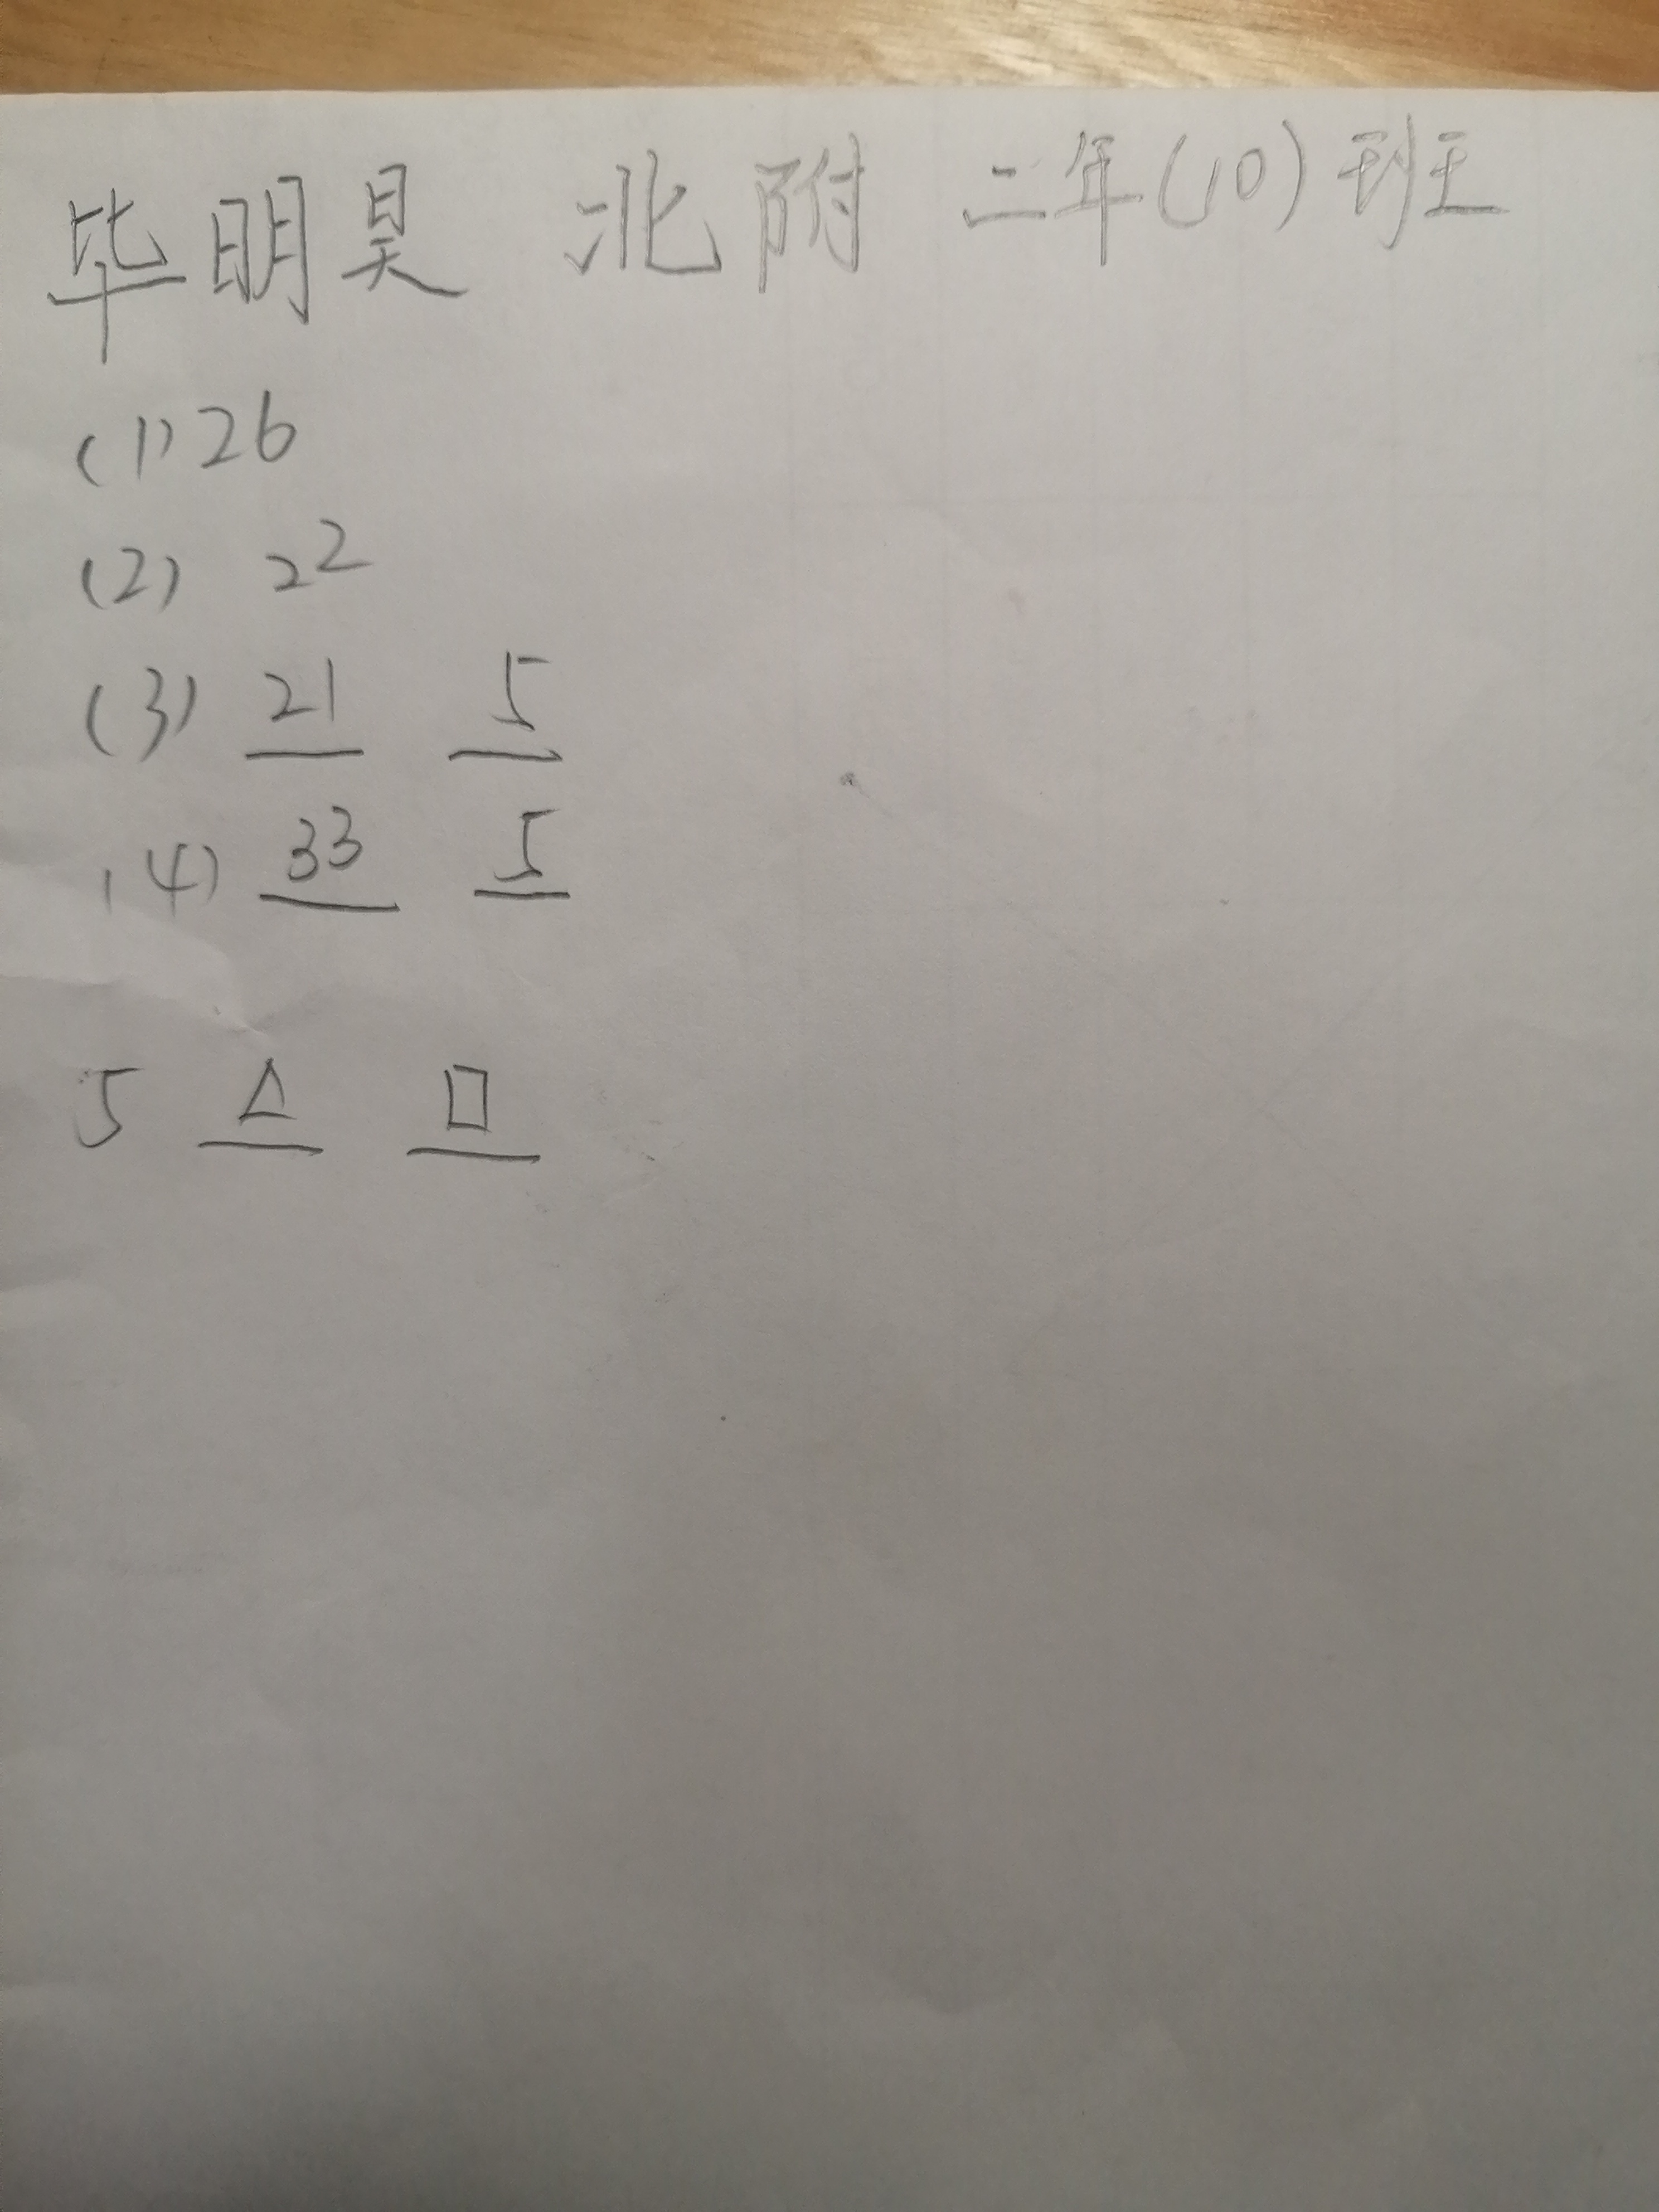 毕明昊 北附 二年(10)班
(1) 26
(2) 22
(3) 21 5
(4) 33 5
5 △ □